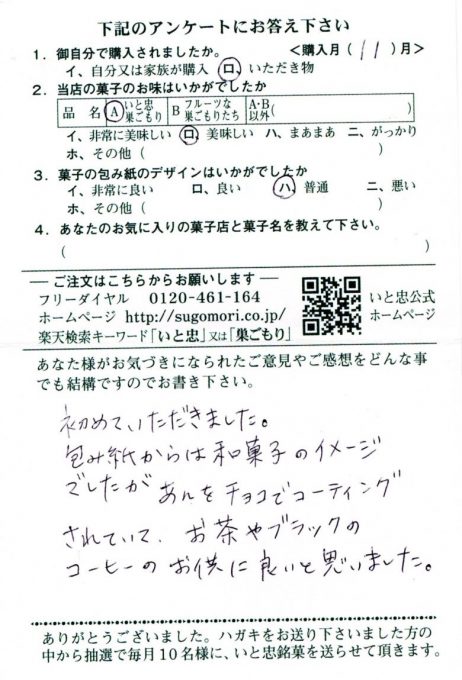 下記のアンケートにお答え下さい
1．御自分で購入されましたか。　＜購入月（11）月＞
イ、自分又は家族が購入　ロ、いただき物
2．当店の菓子のお味はいかがでしたか
品　名　A いと忠巣ごもり　B フルーツな巣ごもりたち　A・B以外（　　　）
イ、非常に美味しい　ロ、美味しい　ハ、まあまあ　ニ、がっかり
ホ、その他（　　　）
3．菓子の包み紙のデザインはいかがでしたか
イ、非常に良い　ロ、良い　ハ、普通　ニ、悪い
ホ、その他（　　　）
4．あなたのお気に入りの菓子店と菓子名を教えて下さい。
（　　　）
― ご注文はこちらからお願いします ―
フリーダイヤル　0120-461-164
ホームページ　http://sugomori.co.jp/
楽天検索キーワード「いと忠」又は「巣ごもり」
いと忠公式
ホームページ
あなた様がお気づきになられたご意見やご感想をどんな事
でも結構ですのでお書き下さい。
初めていただきました。
包み紙からは和菓子のイメージ
でしたが あんをチョコでコーティング
されていて、お茶やブラックの
コーヒーのお供に良いと思いました。
ありがとうございました。ハガキをお送り下さいました方の
中から抽選で毎月10名様に、いと忠銘菓を送らせて頂きます。